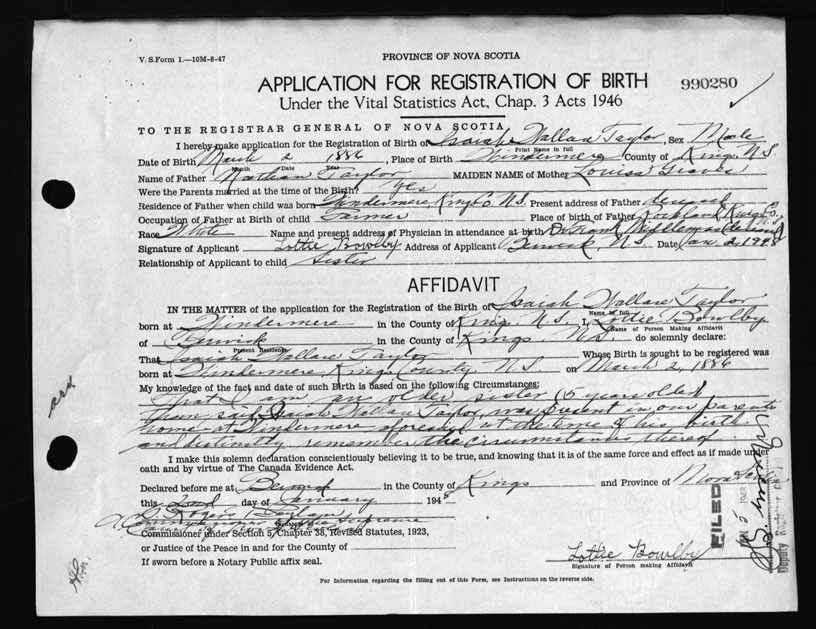 V. S. Form 1.—10M-8-47
PROVINCE OF NOVA SCOTIA
APPLICATION FOR REGISTRATION OF BIRTH
990280
Under the Vital Statistics Act, Chap. 3 Acts 1946
TO THE REGISTRAR GENERAL OF NOVA SCOTIA
I hereby make application for the Registration of Birth of Isaiah Wallace Taylor, Sex Male
Print Name in full
Date of Birth March 2 1886, Place of Birth Windermere County of Kings, N.S.
Month Date Year
Name of Father Nathan Taylor MAIDEN NAME of Mother Louisa Graves
Were the Parents married at the time of the Birth? Yes
Residence of Father when child was born Windermere, Kings Co. N.S. Present address of Father deceased
Occupation of Father at Birth of child Farmer Place of birth of Father Rockland Kings Co. N.S.
Race White Name and present address of Physician in attendance at birth Dr. Frank Middlemas deceased
Signature of Applicant Lottie Bowlby Address of Applicant Berwick, N.S. Date Jan 2, 1948
Relationship of Applicant to child Sister
AFFIDAVIT
IN THE MATTER of the application for the Registration of the Birth of Isaiah Wallace Taylor
Name in full
born at Windermere in the County of Kings, N.S. I, Lottie Bowlby
Name of Person Making Affidavit
of Berwick in the County of Kings, N.S. do solemnly declare:
Present Residence
That Isaiah Wallace Taylor Whose Birth is sought to be registered was
born at Windermere, Kings County, N.S. on March 2, 1886
My knowledge of the fact and date of such Birth is based on the following Circumstances:
That I am an older sister (5 years older)
than said Isaiah Wallace Taylor, was present in our parents
home at Windermere aforesaid at the time of his birth
and distinctly remember the circumstances thereof
I make this solemn declaration conscientiously believing it to be true, and knowing that it is of the same force and effect as if made under
oath and by virtue of The Canada Evidence Act.
Declared before me at Berwick in the County of Kings and Province of Nova Scotia
this 2nd day of January 1948
A Commissioner Supreme
Commissioner under Section 5, Chapter 38, Revised Statutes, 1923,
or Justice of the Peace in and for the County of
If sworn before a Notary Public affix seal.
Lottie Bowlby
Signature of Person making Affidavit
For Information regarding the filling out of this Form, see Instructions on the reverse side.
FILED
Deputy Registrar